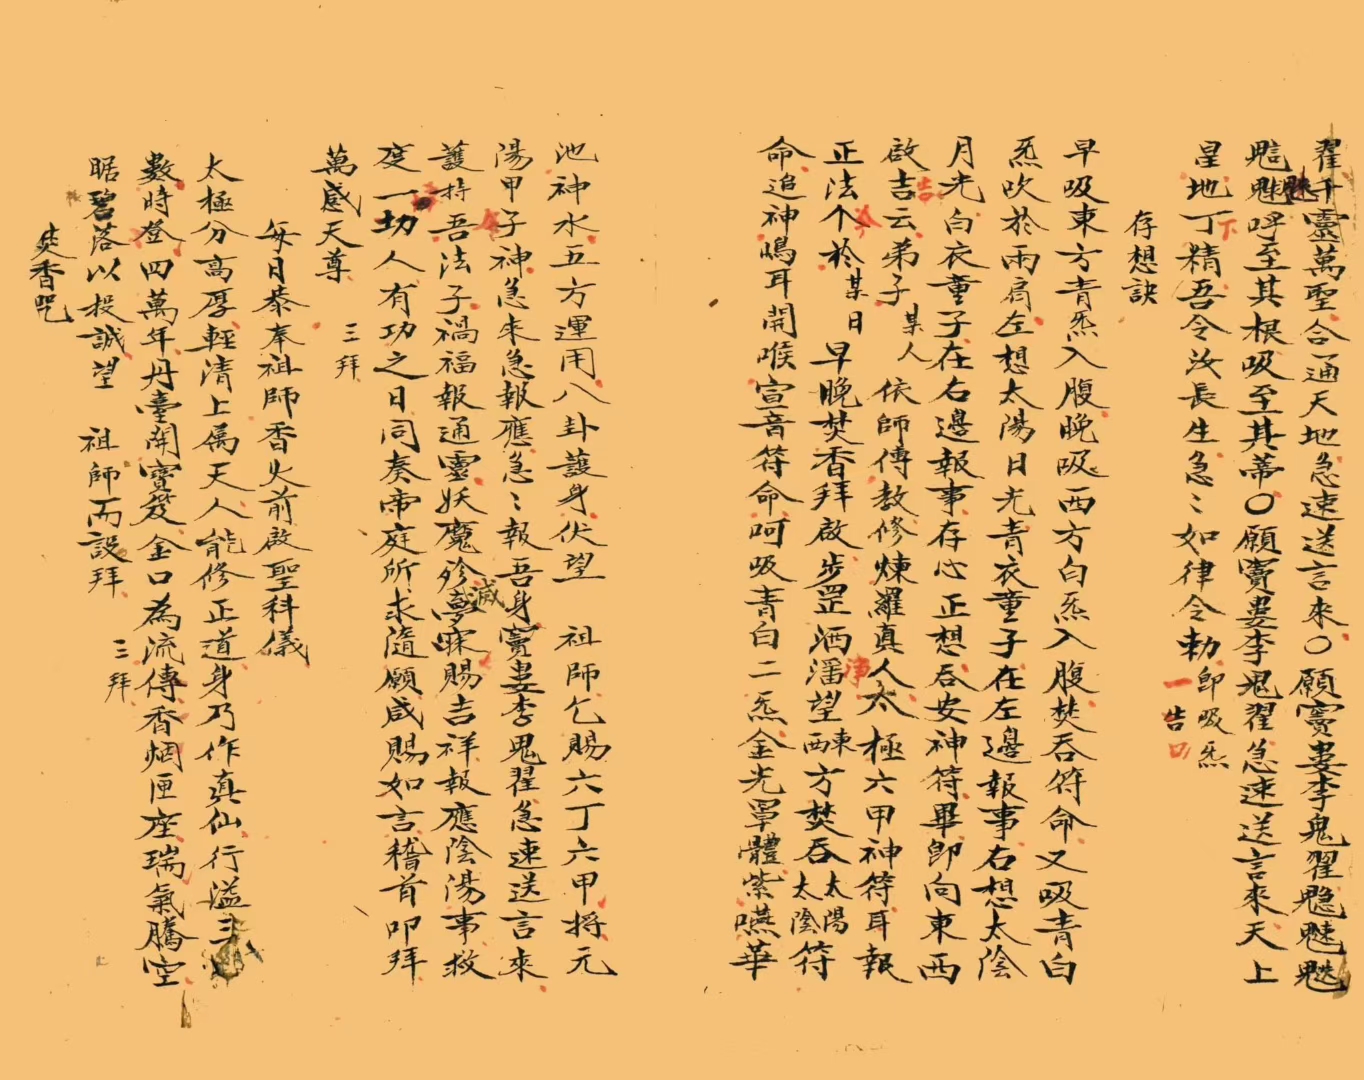 翟千靈萬聖合通天地急速送言來○願竇婁李鬼翟魒魓魁
魁呼至其根吸至其蒂○願竇婁李鬼翟急速送言來天上
星地丁精吾令汝長生急〻如律令勅 即吸炁
下
一吉口
存想訣
早吸東方青炁入腹晚吸西方白炁入腹焚吞符命又吸青白
炁吹於兩肩左想太陽日光青衣童子在左邊報事右想太陰
月光白衣童子在右邊報事存心正想吞安神符畢即向東西
啟吉云弟子某人 依師傳教修煉羅真人太極六甲神符耳報
正法个於某日 早晚焚香拜啟步罡洒潘望東西方焚吞太陽太陰符
今
淨
命追神鳴耳開喉宣音符命呵吸青白二炁金光罩體紫嚥華
池神水五方運用八卦護身伏望 祖師乞賜六丁六甲將元
陽甲子神急來急報應急〻報吾身竇婁李鬼翟急速送言來
護持吾法子禍福報通靈妖魔殄夢寐賜吉祥報應陰陽事救
滅
度一切人有功之日同奏帝庭所求隨願咸賜如言稽首叩拜
萬感天尊 三拜
每日恭奉祖師香火前啟聖科儀
太極分高厚輕清上屬天人能修正道身乃作真仙行溢三
數時登四萬年丹臺開寶笈金口為流傳香烟匝座瑞氣騰空
睱碧落以投誠望 祖師而設拜 三拜
焚香咒